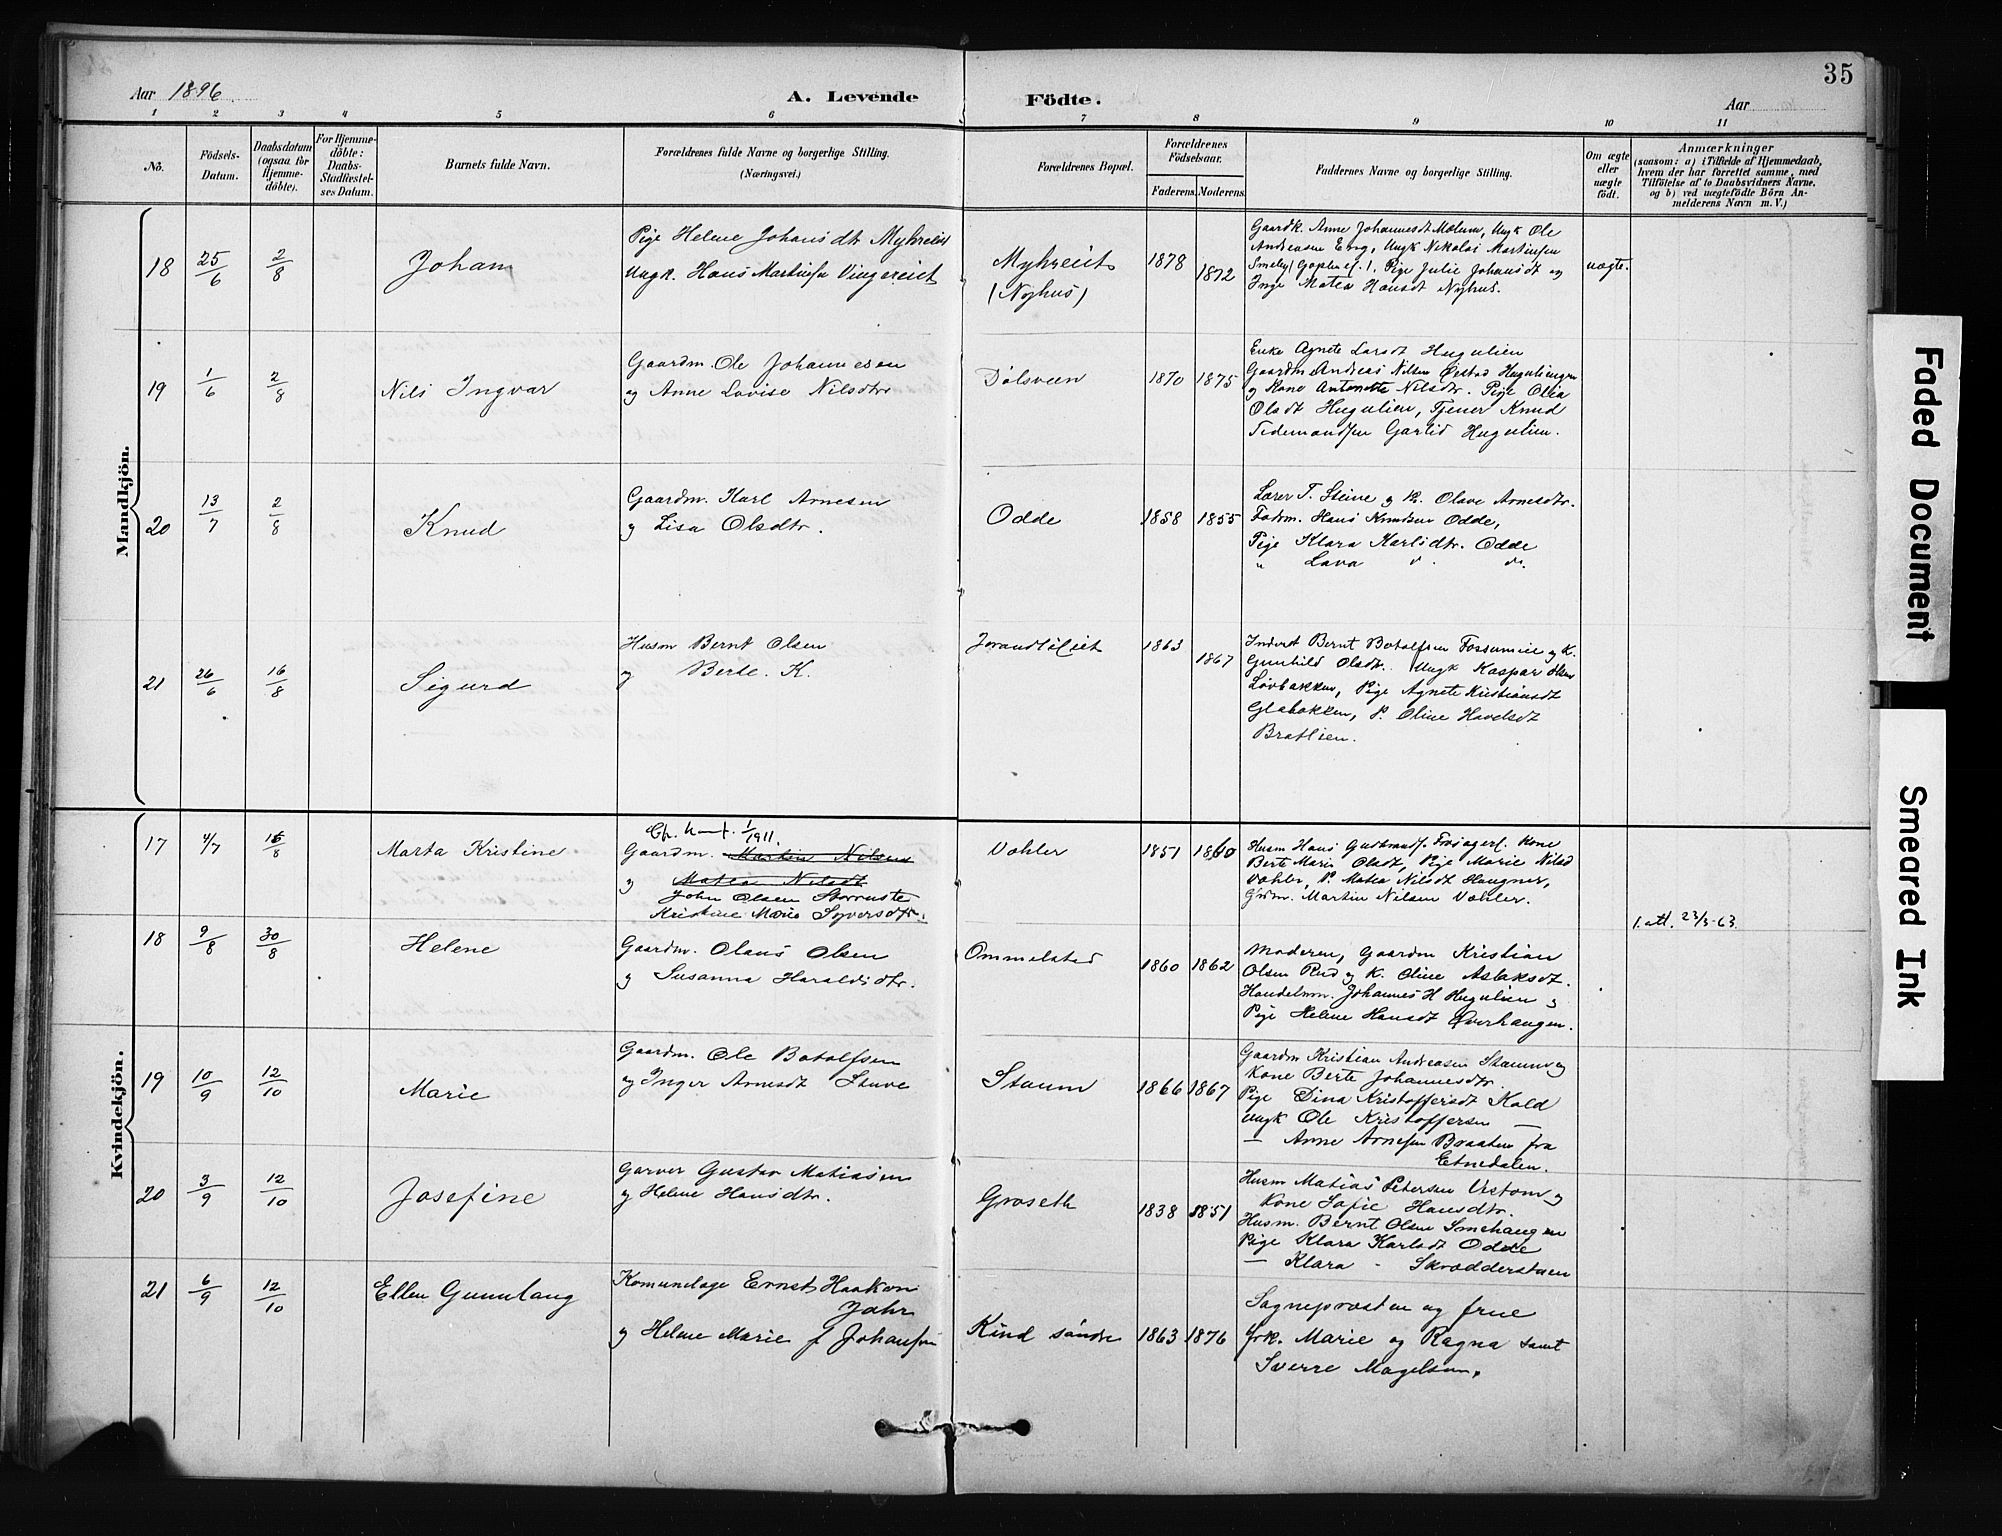 35
Aar 1896.
A. Levende Födte.
Aar
1 2 3 4 5 6 7 8 9 10 11
No.
Födsels-Datum.
Daabsdatum (ogsaa for Hjemme-döbte).
For Hjemme-döbte: Daabs-Stadfæstel-ses Datum.
Barnets fulde Navn.
Forældrenes fulde Navne og borgerlige Stilling.
(Næringsvei.)
Forældrenes Bopæl.
Forældrenes Födselsaar.
Faderens. Moderens.
Faddernes Navne og borgerlige Stilling.
Om ægte eller uægte födt.
Anmærkninger
(saasom: a) i Tilfælde af Hjemmedaab,
hvem der har forrettet samme, med
Tilföielse af to Daabsvidners Navne,
og b) ved uægtefödte Börn An-
melderens Navn m. V.)
Mandkjön.
18 25/6 2/8 Johan
Pige Helene Johansdtr Myhreeiet
Ungk. Hans Martinsen Vingereiet
Myhreiet
(Nyhus)
1878 1872
Gaardk. Anne Johannesdt Mælum, Ungk Ole
Andreasen Eng, Ungk Nikolai Martinsen
Smeby, Pige Julie Johansdt og
Inge Matea Hansdt Nyhus.
uægte.
19 1/6 2/8 Nils Ingvar
Gaardm. Ole Johannesen
og Anne Lovise Nilsdtr
Dölsveen
1870 1875
Enke Agnete Larsdt Hugulien
Gaardm Andreas Nilsen Hugulien
og Kone Antonette Nilsdtr. Pige Olea
Olsdt Hugulien, Tjener Knud
Tidemandsen Garlid Hugulien.
20 13/7 2/8 Knud
Gaardm. Karl Arnesen
og Lisa Olsdtr.
Odde
1858 1855
Lærer T. Steine og K. Olave Arnesdtr.
Hans Knudsen Odde,
Pige Klara Karlsdtr. Odde
" Lava
21 26/6 16/8 Sigurd
Husm Bernt Olsen
og Berte. K.
1863 1867
Inderst Bernt Botolfsen Fossumeie og K.
Gunhild Olsdt. Ungk Kaspar Olsen
Lövbakken, Pige Agnete Kristiansdt
Glabakken, P. Oline Havelsdt
Bratlien.
Kvindekjön.
17 4/7 16/8 Marta Kristine
1/1911.
Gaardm. Martin Nilsen
og Matea Nilsdt
John Olsen Storruste
Kristine Marie Syversdtr.
Vohler
1851 1860
Husm Hans Gudbrandsf. Kone
Berte Marie Olsdt, Pige Marie Nilsd
Vohler, P. Matea Nilsdt Haugner,
Grdm. Martin Nilsen Vohler.
18 9/8 30/8 Helene
Gaardm. Olaus Olsen
og Susanna Haraldsdtr.
Ommelstad
1860 1862
Moderen, Gaardm Kristian
Olsen Rud og K. Oline Aslaksdt.
Handelsm. Johannes H Hugulien og
Pige Helene Hansdt Överhaugen.
1. att. 23/3-63.
19 10/9 12/10 Marie
Gaardm. Ole Botolfsen
og Inger Arnesdt Stuve
Staum
1866 1867
Gaardm Kristian Andreasen Staum og
Kone Berte Johannesdtr.
Pige Dina Kristoffersdt Kold
Ungk Ole Kristoffersen —
— Anne Arnesen Braaten fra
Etnedalen.
20 3/9 12/10 Josefine
Garver Gustav Matiasen
og Helene Hansdtr.
Groseth
1838 1851
Husm Matias Petersen Vestom og
Kone Sofie Hansdtr.
Husm. Bernt Olsen Smehaugen
Pige Klara Karlsdt Odde
— Klara - Skrædderstuen
21 6/9 12/10 Ellen Gunnlaug
Komunelæge Ernst Haakon
Jahr
og Helene Marie f Johansen
Kind söndre
1863 1876
Sognepresten og frue
frk. Marie og Ragna samt
Sverre Magelsen.
Faded Document
Smeared Ink